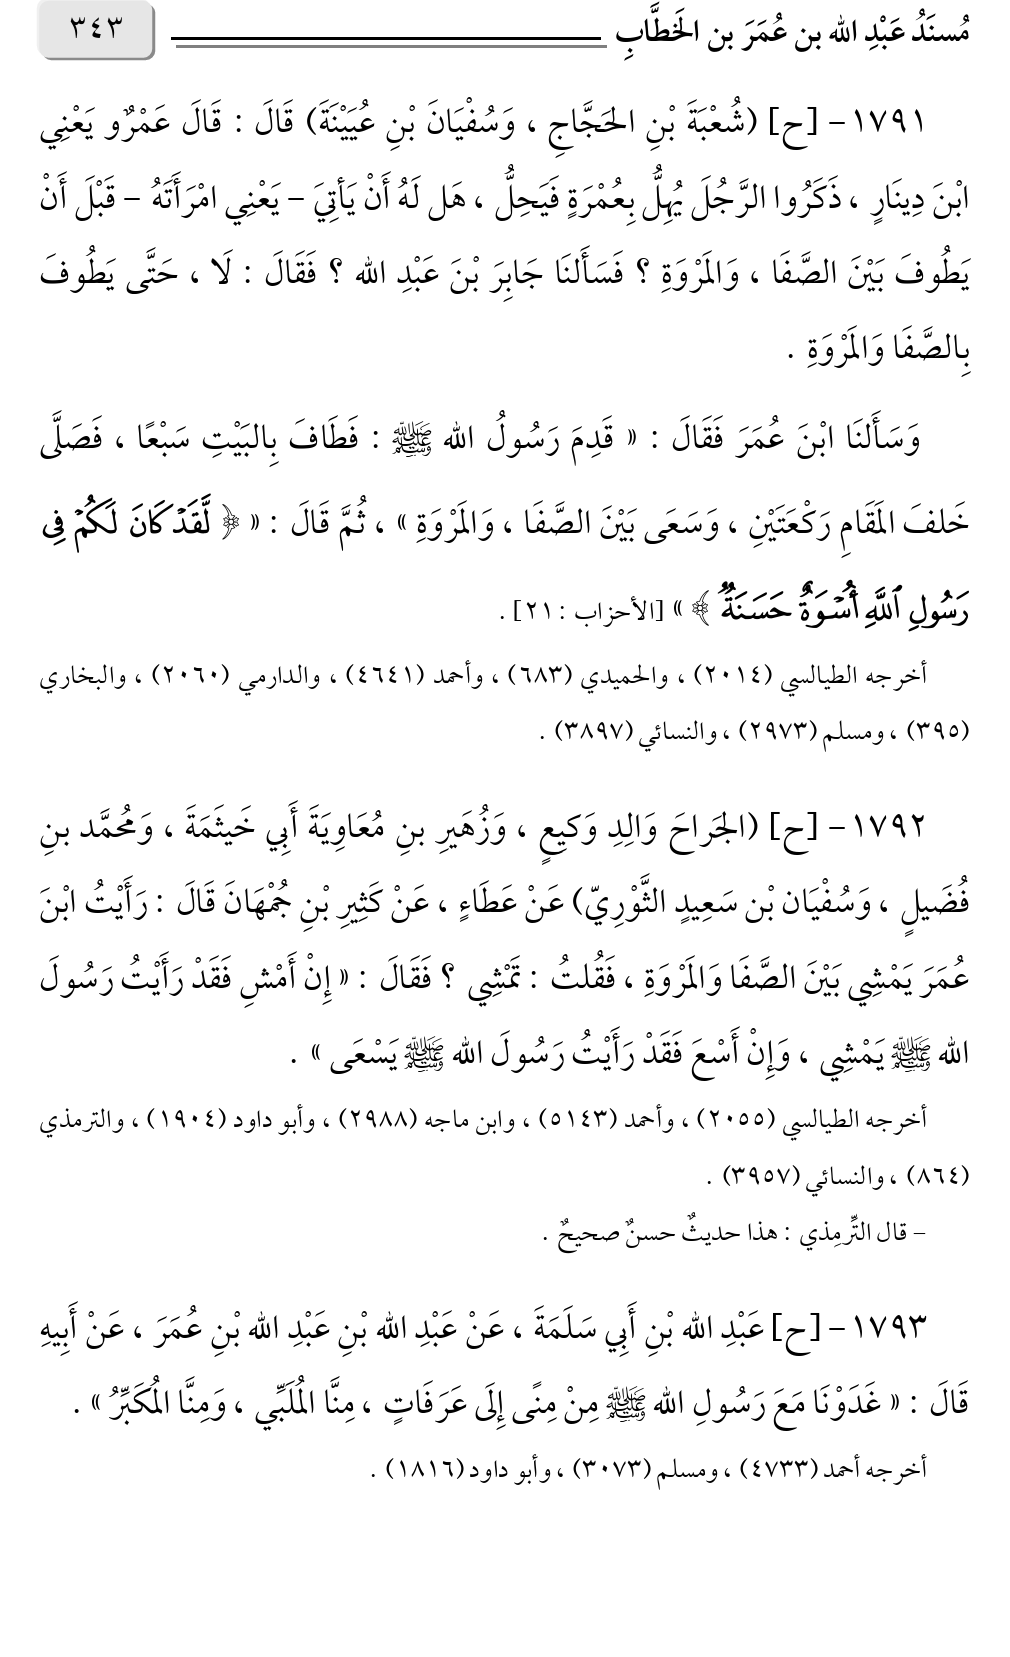 مُسنَدُ عَبْدِ الله بن عُمَرَ بن الخَطَّابِ ٣٤٣
١٧٩١ – [ح] (شُعْبَةَ بْنِ الحَجَّاجِ ، وَسُفْيَانَ بْنِ عُيَيْنَةَ) قَالَ : قَالَ عَمْرٌو يَعْنِي
ابْنَ دِينَارٍ ، ذَكَرُوا الرَّجُلَ يُهِلُّ بِعُمْرَةٍ فَيَحِلُّ ، هَل لَهُ أَنْ يَأتِيَ – يَعْنِي امْرَأَتَهُ – قَبْلَ أَنْ
يَطُوفَ بَيْنَ الصَّفَا ، وَالمَرْوَةِ ؟ فَسَأَلنَا جَابِرَ بْنَ عَبْدِ الله ؟ فَقَالَ : لَا ، حَتَّى يَطُوفَ
بِالصَّفَا وَالمَرْوَةِ .
وَسَأَلنَا ابْنَ عُمَرَ فَقَالَ : « قَدِمَ رَسُولُ الله ﷺ : فَطَافَ بِالبَيْتِ سَبْعًا ، فَصَلَّى
خَلفَ المَقَامِ رَكْعَتَيْنِ ، وَسَعَى بَيْنَ الصَّفَا ، وَالمَرْوَةِ » ، ثُمَّ قَالَ : « ﴿ لَّقَدْ كَانَ لَكُمْ فِى
رَسُولِ ٱللَّهِ أُسْوَةٌ حَسَنَةٌ ﴾ » [الأحزاب : ٢١] .
أخرجه الطيالسي (٢٠١٤) ، والحميدي (٦٨٣) ، وأحمد (٤٦٤١) ، والدارمي (٢٠٦٠) ، والبخاري
(٣٩٥) ، ومسلم (٢٩٧٣) ، والنسائي (٣٨٩٧) .
١٧٩٢ – [ح] (الجَراحَ وَالِدِ وَكيعٍ ، وَزُهَيرِ بنِ مُعَاوِيَةَ أَبِي خَيثَمَةَ ، وَمُحمَّد بنِ
فُضَيلٍ ، وَسُفْيَان بْن سَعِيدٍ الثَّوْرِيّ) عَنْ عَطَاءٍ ، عَنْ كَثِيرِ بْنِ جُمْهَانَ قَالَ : رَأَيْتُ ابْنَ
عُمَرَ يَمْشِي بَيْنَ الصَّفَا وَالمَرْوَةِ ، فَقُلتُ : تَمْشِي ؟ فَقَالَ : « إِنْ أَمْشِ فَقَدْ رَأَيْتُ رَسُولَ
الله ﷺ يَمْشِي ، وَإِنْ أَسْعَ فَقَدْ رَأَيْتُ رَسُولَ الله ﷺ يَسْعَى » .
أخرجه الطيالسي (٢٠٥٥) ، وأحمد (٥١٤٣) ، وابن ماجه (٢٩٨٨) ، وأبو داود (١٩٠٤) ، والترمذي
(٨٦٤) ، والنسائي (٣٩٥٧) .
– قال التِّرمِذي : هذا حديثٌ حسنٌ صحيحٌ .
١٧٩٣ – [ح] عَبْدِ الله بْنِ أَبِي سَلَمَةَ ، عَنْ عَبْدِ الله بْنِ عَبْدِ الله بْنِ عُمَرَ ، عَنْ أَبِيهِ
قَالَ : « غَدَوْنَا مَعَ رَسُولِ الله ﷺ مِنْ مِنًى إِلَى عَرَفَاتٍ ، مِنَّا المُلَبِّي ، وَمِنَّا المُكَبِّرُ » .
أخرجه أحمد (٤٧٣٣) ، ومسلم (٣٠٧٣) ، وأبو داود (١٨١٦) .